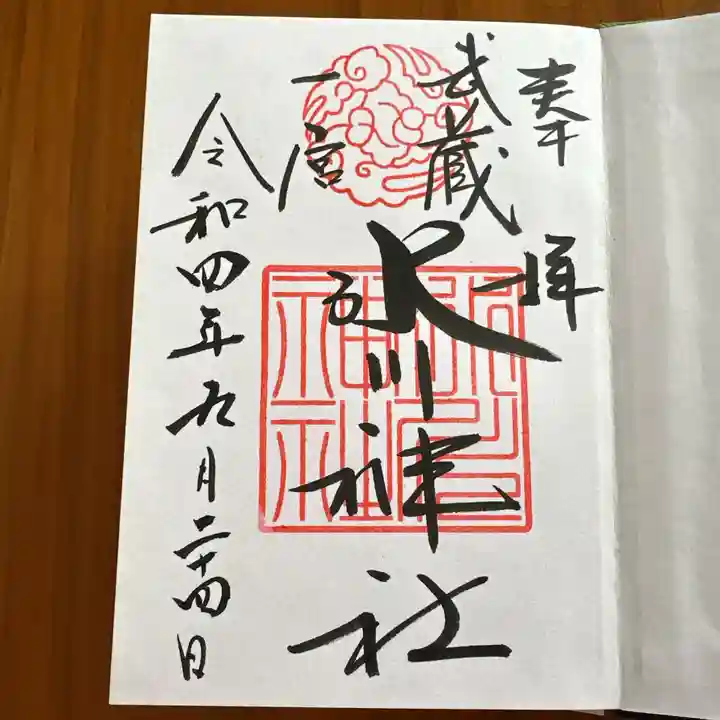 奉拝
武蔵
一宮
氷川神社
氷川神社
令和四年九月二十四日